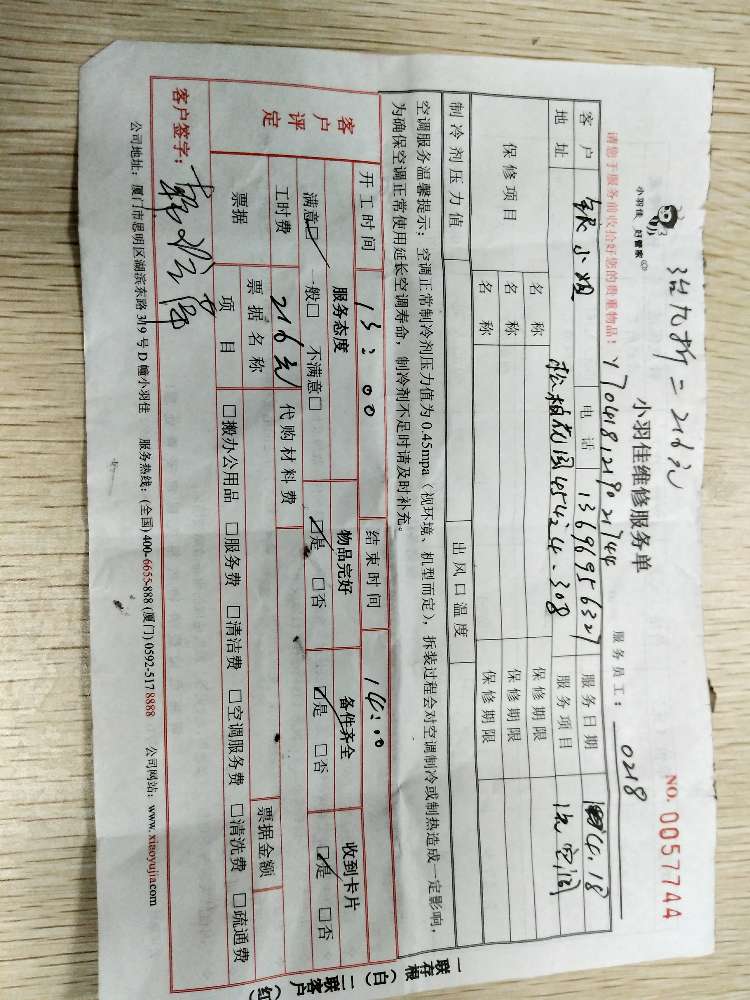 小羽佳 好管家
打九折=216元
小羽佳维修服务单
NO. 0057744
请您于服务前收拾好您的贵重物品!
Y704181219021744
服务员工: 0218
客户 电话 13696956327 服务日期 4.18
地址 松柏 308 服务项目 洗空调
保修项目 名称 保修期限
名称 保修期限
名称 保修期限
制冷剂压力值 出风口温度
空调服务温馨提示: 空调正常制冷剂压力值为0.45mpa (视环境、机型而定), 拆装过程会对空调制冷或制热造成一定影响,
为确保空调正常使用延长空调寿命, 制冷剂不足时请及时补充。
客户评定
开工时间 13:00 结束时间 14:00
服务态度 物品完好 备件齐全 收到卡片
满意☑ 一般□ 不满意□ ☑是 □否 ☑是 □否 ☑是 □否
工时费 216元 代购材料费
票据 票据名称 票据金额
项目 □搬办公用品 □服务费 □清洁费 □空调服务费 □清洗费 □疏通费
客户签字:
公司地址: 厦门市思明区湖滨东路319号D幢小羽佳 服务热线: (全国) 400-6655-888 (厦门) 0592-5178888 公司网站: www.xiaoyujia.com
一联存根 (白) 二联客户 (红)